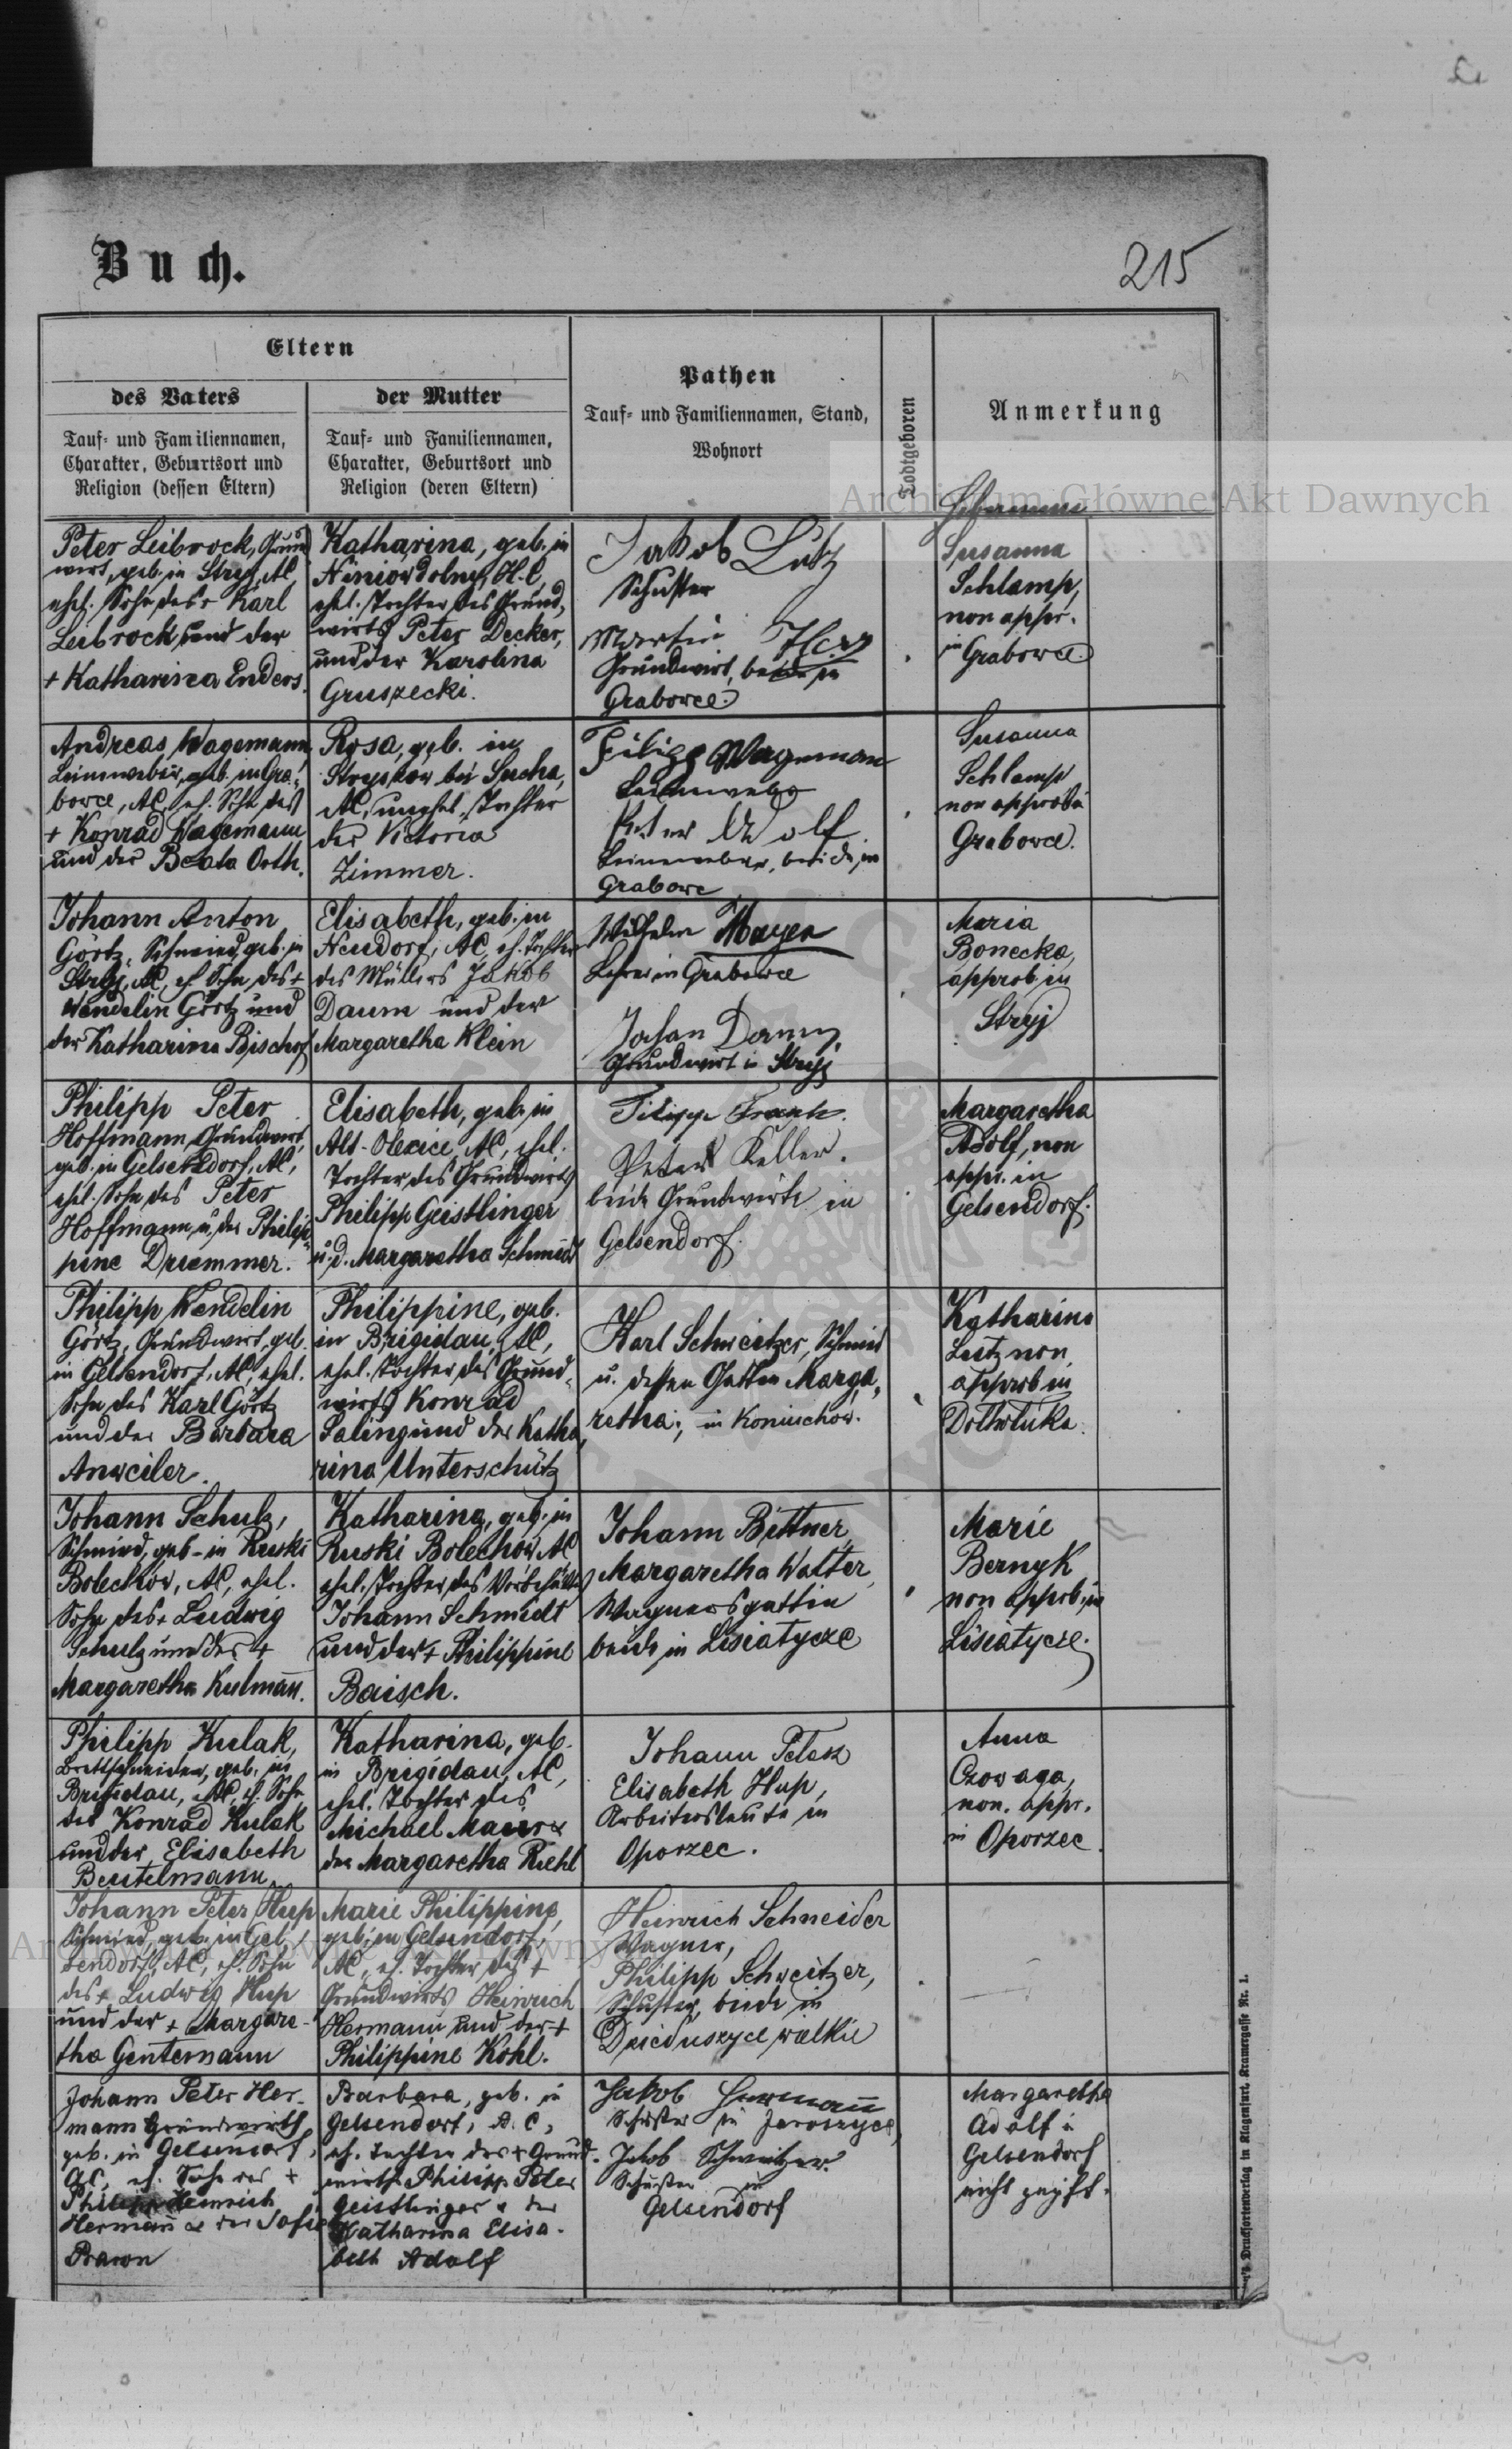 Buch.
215
Eltern
des Vaters
Tauf- und Familiennamen,
Charakter, Geburtsort und
Religion (dessen Eltern)
der Mutter
Tauf- und Familiennamen,
Charakter, Geburtsort und
Religion (deren Eltern)
Pathen
Tauf- und Familiennamen, Stand,
Wohnort
Todtgeboren
Anmerkung
Hebamme
Archiwum Główne Akt Dawnych
Peter Leibrock, Grund
wirt, geb. in Stryj, AC,
ehel. Sohn des + Karl
Leibrock und der
+ Katharina Enders.
Katharina, geb. in
Niniow dolny, H.C.
ehel. Tochter des Grund,
wirts Peter Decker,
und der Karolina
Gruszecki.
Jakob Lutz
Schuster
Martin
Grundwirt, beide in
Grabowce.
Susanna
Schlamp,
non appr.
in Grabowce
Andreas Wagemann,
Leinweber, geb. in Gra,
bowce, AC, eh. Sohn des
+ Konrad Wagemann
und der Beata Orth.
Rosa, geb. in
bei Sucha,
AC, unehel. Tochter
der Victoria
Zimmer.
Filipp Wagemann
Leinweber
Peter Wolf
Leineweber, beide in
Grabowce
Susanna
Schlamp
non approb. in
Grabowce.
Johann Anton
Görtz, Schmied, geb. in
Stryj, AC, eh. Sohn des +
Wendelin Görtz und
der Katharina Bischof
Elisabeth, geb. in
Neudorf, AC, eh. Tochter
des Müllers Jakob
Daum und der
Margaretha Klein
Wilhelm Mayer
Lehrer in Grabowce
Johan Daum,
Grundwirt in Stryj
Maria
Bonecka,
approb in
Stryj
Philipp Peter
Hoffmann, Grundwirt,
geb. in Gelsendorf, AC,
ehel. Sohn des Peter
Hoffmann, u. der Philip
pine Druemmer.
Elisabeth, geb. in
Alt-Olexice, AC, ehel.
Tochter des Grundwirts
Philipp Geistlinger
u. d. Margaretha Schmidt
Filipp Frank.
Peter Keller.
beide Grundwirte in
Gelsendorf.
Margaretha
Adolf, non
appr. in
Gelsendorf.
Philipp Wendelin
Görtz, Grundwirt, geb.
in Gelsendorf, AC, ehel.
Sohn des Karl Görtz
und der Barbara
Anweiler.
Philippine, geb.
in Brigidau, AC,
ehel. Tochter des Grund,
wirts Konrad
Saling und der Katha,
rina Unterschütz
Karl Schweitzer, Schmied
u. dessen Gattin Marga,
retha, in Koniuchow.
Katharina
Lutz non
approb in
Dolholuka.
Johann Schulz,
Schmied, geb. in Ruski
Bolechów, AC, ehel.
Sohn des + Ludwig
Schulz und der +
Margaretha Kulmann.
Katharina, geb. in
Ruski Bolechów AC
ehel. Tochter des
Johann Schmidt
und der + Philippine
Baisch.
Johann Bittner,
Margaretha Walter,
Wagnersgattin
beide in Lisiatycze
Marie
Bernyk
non approb. in
Lisiatycze.
Philipp Kulak,
Brettschneider, geb. in
Brigidau, AC, eh. Sohn
des Konrad Kulak
und der Elisabeth
Beutelmann.
Katharina, geb.
in Brigidau, AC,
ehel. Tochter des
Michael Maurer
der Margaretha Riehl
Johann
Elisabeth Hup,
Arbeitersleute in
Oporzec.
Anna
Czowaga,
non. appr.
in Oporzec
Johann Peter Hup
Schmied, geb. in Gel,
sendorf, AC, eh. Sohn
des + Ludwig Hup
und der + Margare-
tha Gentemann
Marie Philippine,
geb. in Gelsendorf,
AC, eh. Tochter des +
Grundwirts Heinrich
Hermann und der +
Philippine Kohl.
Heinrich Schneider
Wagner,
Philipp Schweitzer,
Schuster, beide in
Dzieduszyce wielkie
Johann Peter Her-
mann Grundwirth
geb. in Gelsendorf,
AC, eh. Sohn des +
Philipp Heinrich
Hermann & der Sofie
Baron
Barbara, geb. in
Gelsendorf, A.C,
eh. Tochter des + Grund-
wirth Philipp Peter
Geistlinger & der
Katharina Elisa-
beth Adolf
Jakob Hermann
Schuster in Jaroszyce,
Jakob Schweitzer.
Schuster in
Gelsendorf
Margaretha
Adolf in
Gelsendorf
nicht geprüft.
Archiwum Główne Akt Dawnych
Druckfortenverlag in Klagenfurt, Kramergasse Nr. 1.